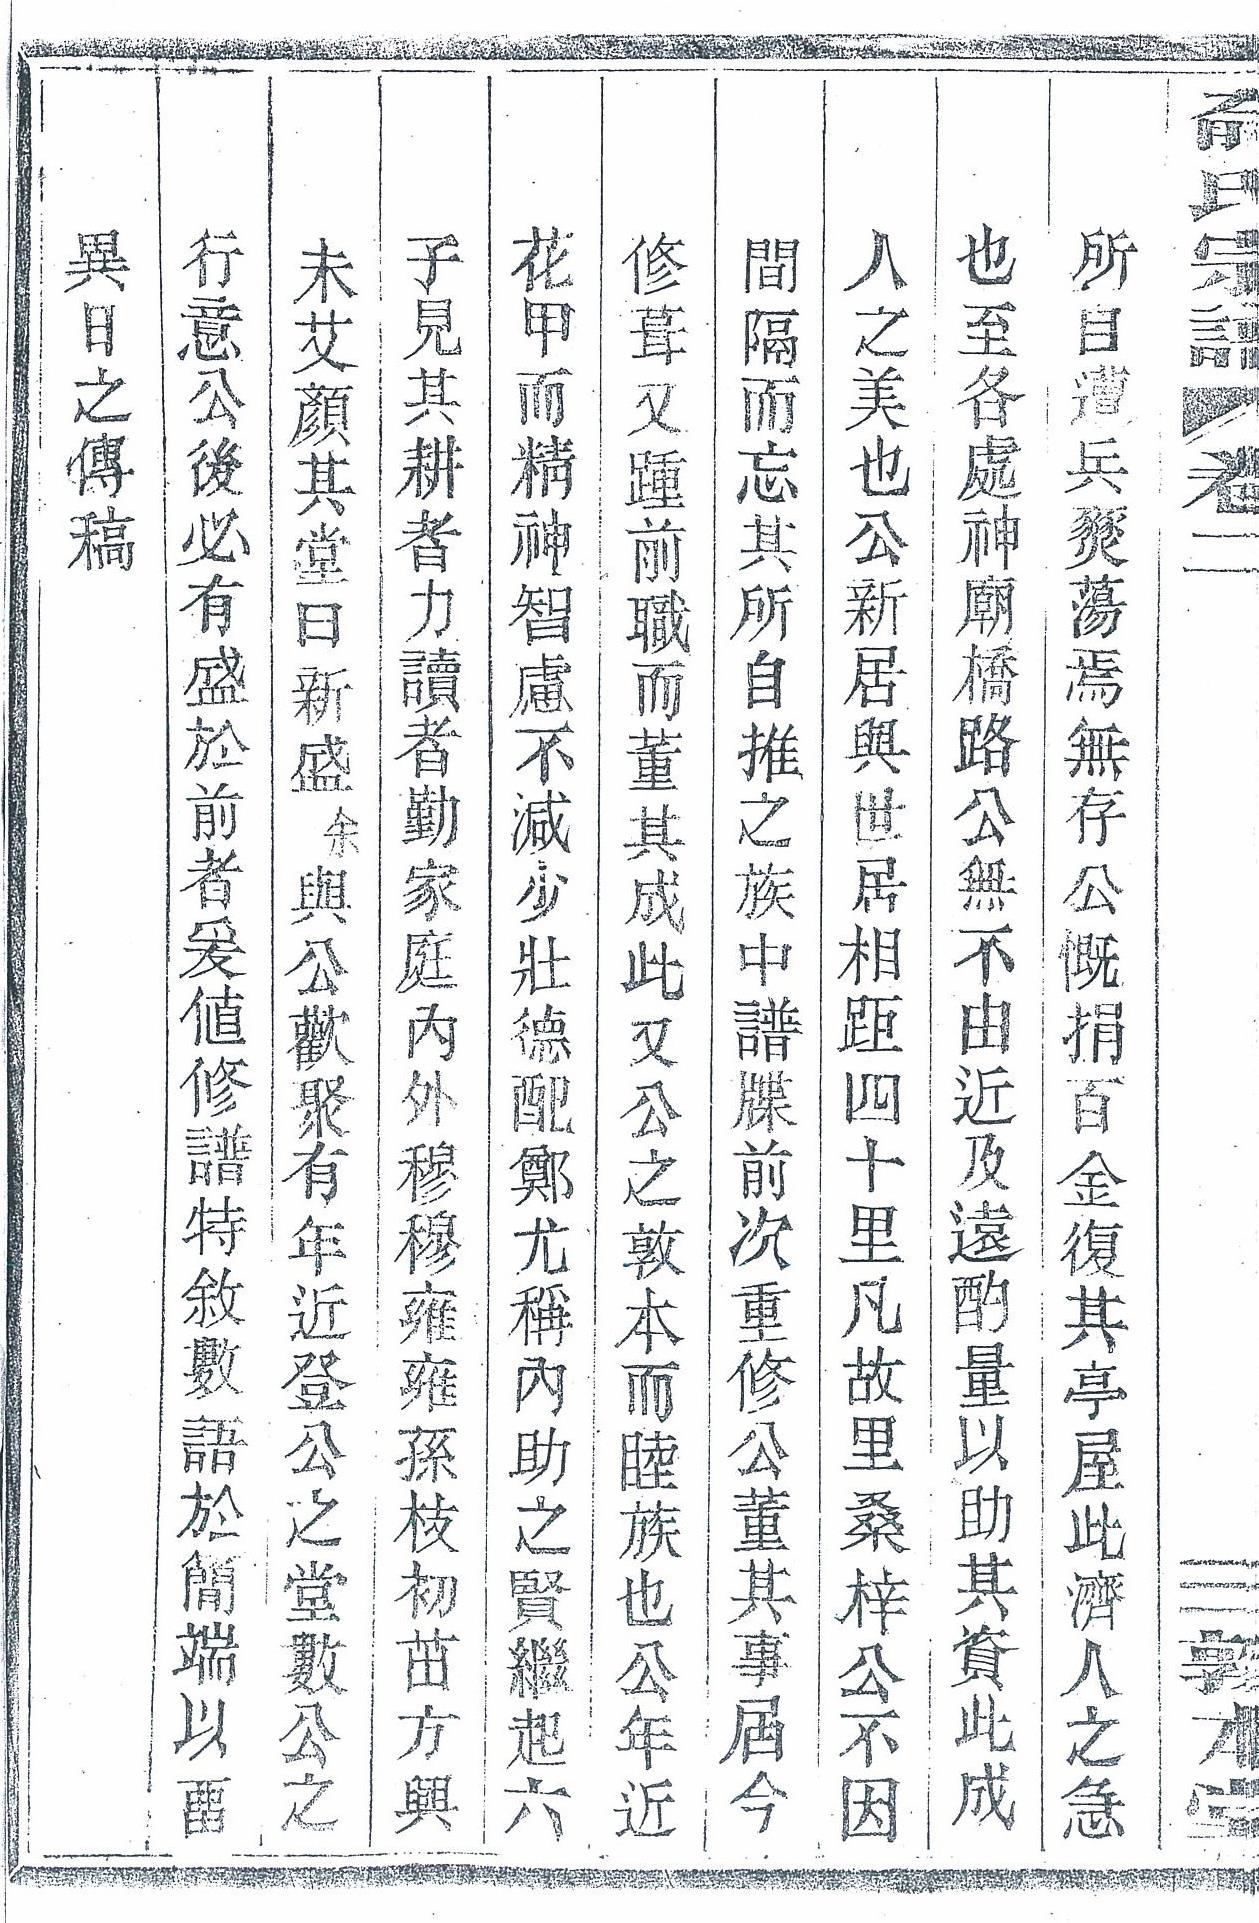 俞氏宗譜 卷二 三 敦本堂
所自遭兵燹蕩焉無存公慨捐百金復其亭屋此濟人之急
也至各處神廟橋路公無不由近及遠酌量以助其資此成
人之美也公新居與世居相距四十里凡故里桑梓公不因
間隔而忘其所自推之族中譜牒前次重修公董其事屆今
修葺又踵前職而董其成此又公之敦本而睦族也公年近
花甲而精神智慮不減少壯德配鄭尤稱內助之賢繼起六
子見其耕者力讀者勤家庭內外穆穆雍雍孫枝初茁方興
未艾顏其堂曰新盛余與公歡聚有年近登公之堂數公之
行意公後必有盛於前者爰値修譜特敘數語於簡端以畱
異日之傳稿